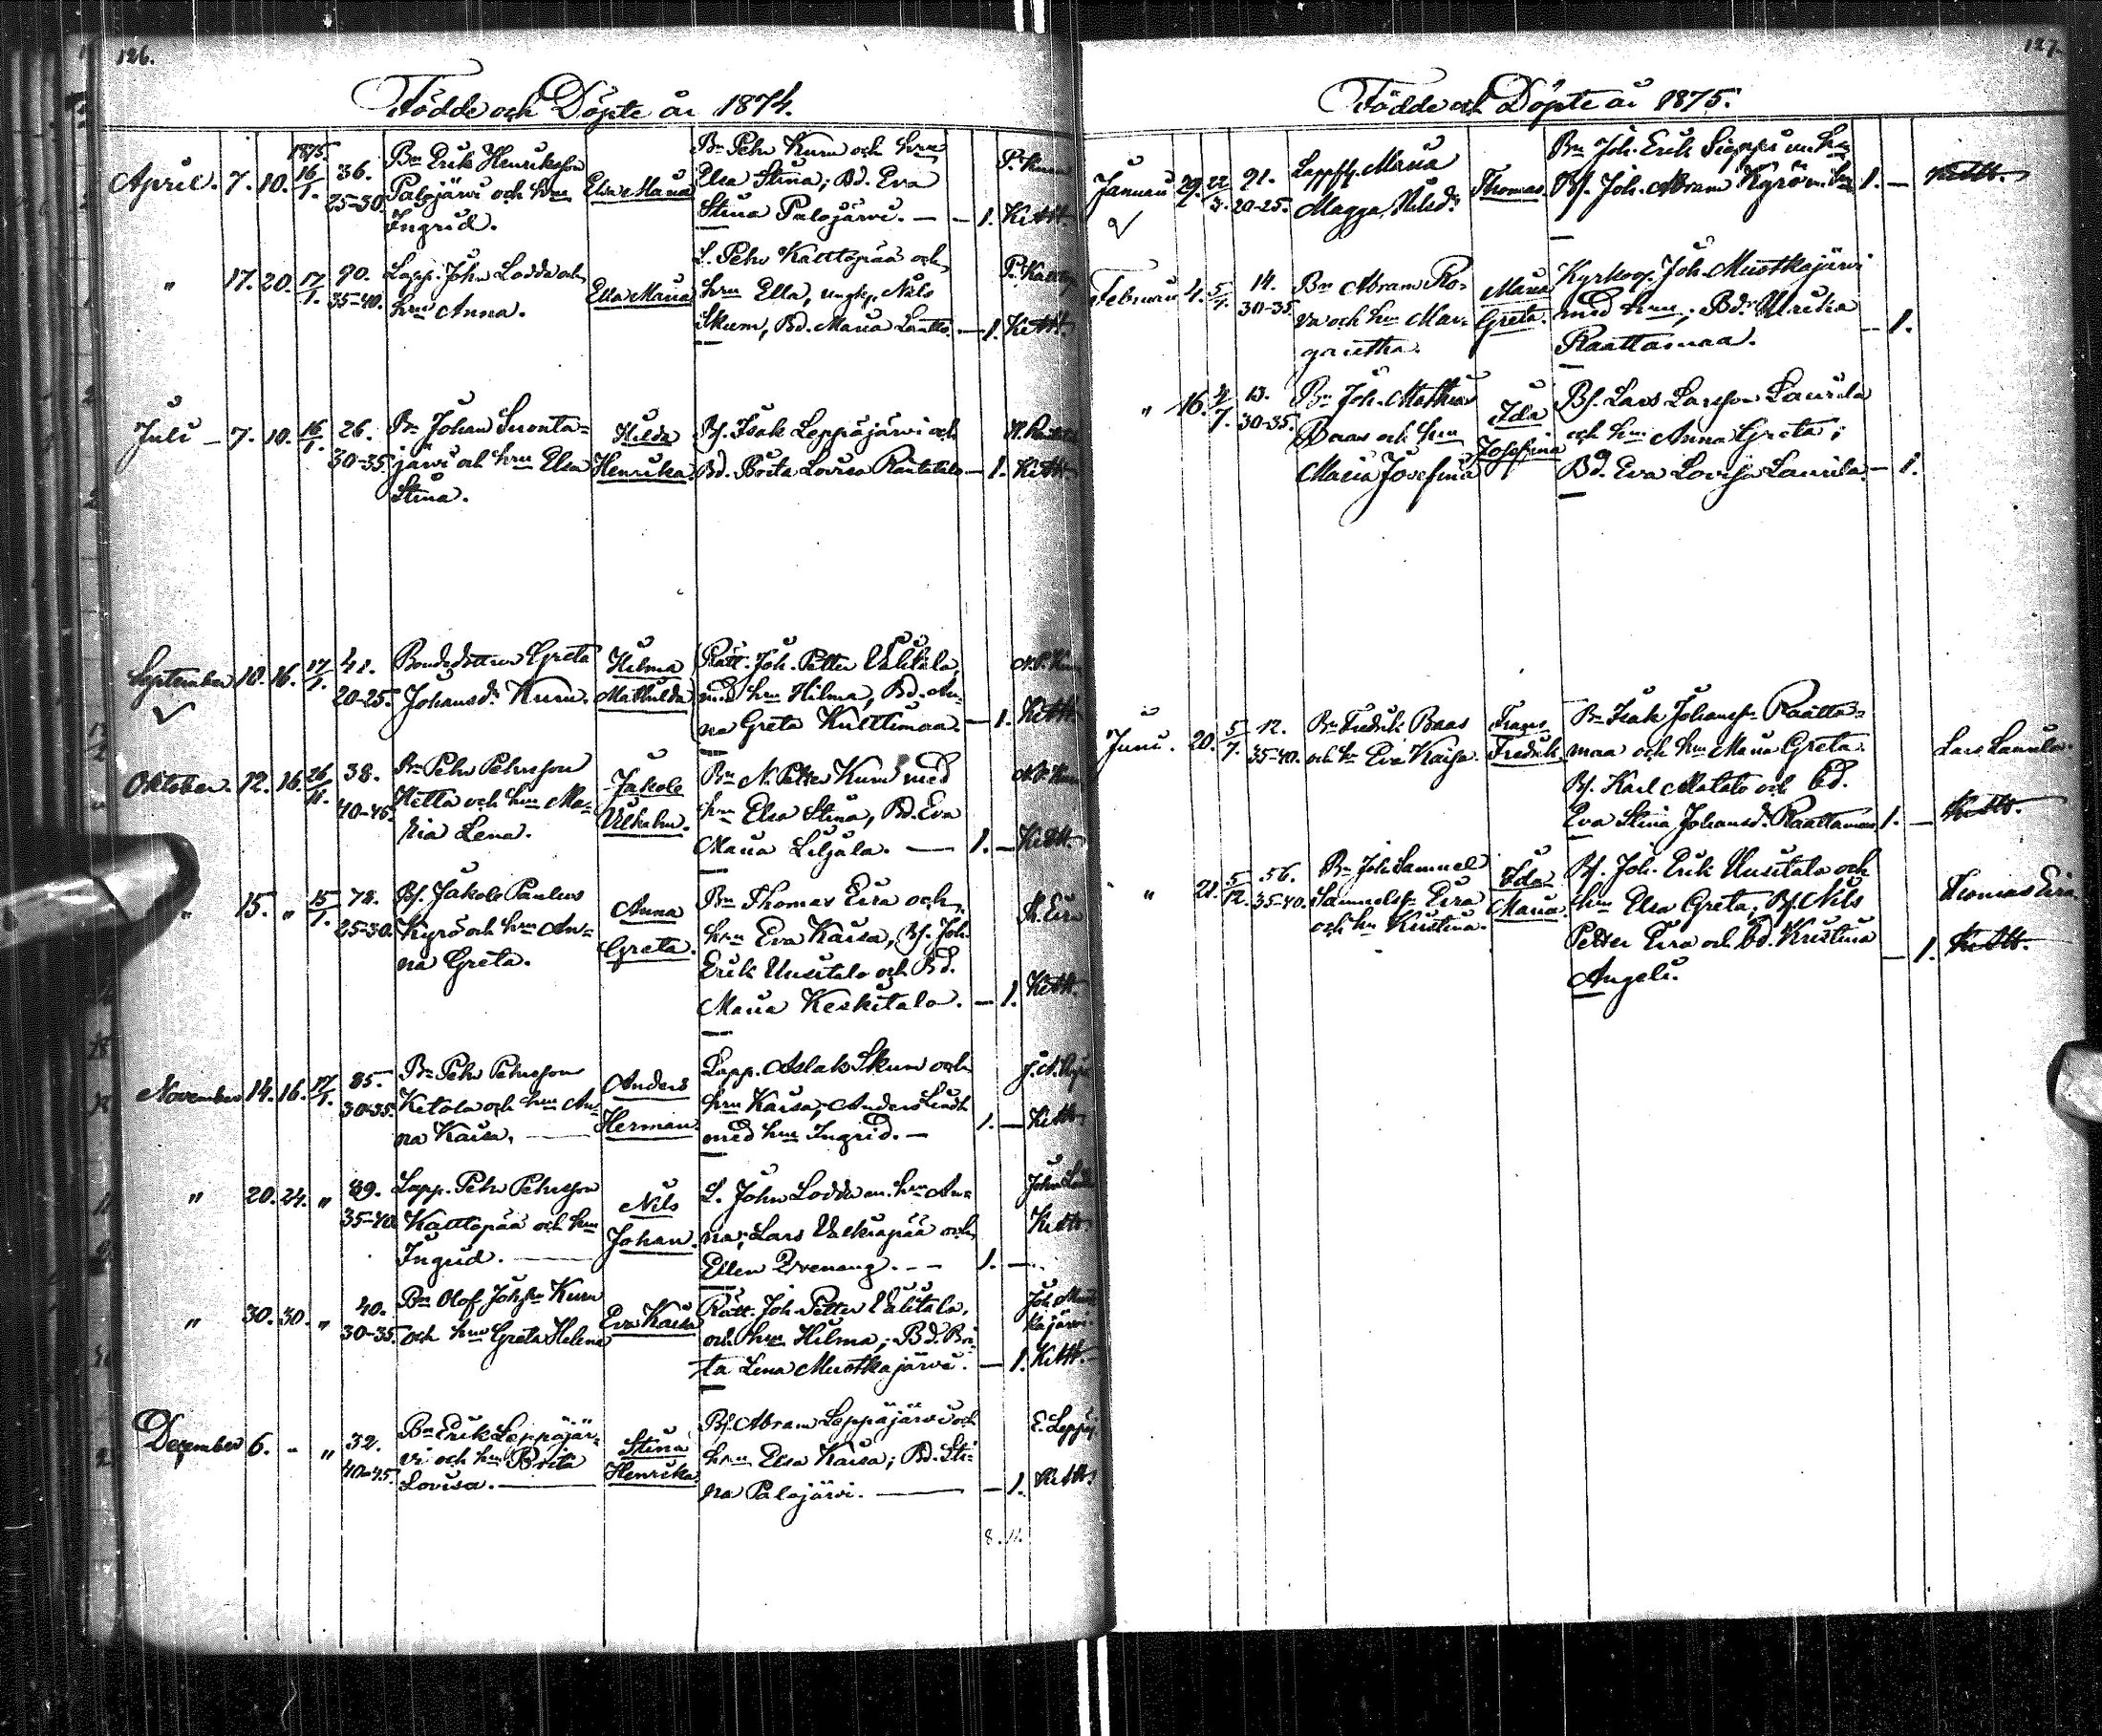 126.
Födde och Döpte år 1874.
1875.
April. 7. 10. 16/1. 36. 25-30. Bn Erik Henriksson
Palojärvi och hm
Ingrid.
Elsa Maria
Bn Pehr Kuru och hm
Elsa Stina; Bd. Eva
Stina Palojärvi. — — 1.
P. Kuru
Kitt.
" 17. 20. 17/1. 90. 35-40. Lapp. John Lodda och
hm Anna.
Ella Maria
L. Pehr Kalttopää och
hm Ella, ungk. Nils
Skum, Bd. Maria Lantto. — 1.
P. Kaltto
Kitt.
Juli — 7. 10. 16/1. 26. 30-35. Bn Johan Suonta-
järvi och hm Elsa
Stina.
Hilda
Henrika.
Bs. Isak Leppäjärvi och
Bd. Brita Lovisa Rautatalo — 1.
Kitt.
September 10. 16. 17/1. 41. 20-25. Bondedottren Greta
Johansdr Kuru.
Hilma
Mathilda
Rätt. Joh. Petter Välitalo,
med hm Hilma, Bd. An-
na Greta Kulttimaa. — 1.
N. P. Kuru
Kitt.
Oktober. 12. 16. 26/11. 38. 40-45. Bn Pehr Pehrsson
Hetta och hm Ma-
ria Lena.
Jakob
Vilhelm.
Bn N. Petter Kuru med
hm Elsa Stina, Bd. Eva
Maria Liljala. — 1. —
N. P. Kuru
Kitt.
" 15. " 15/1. 72. 25-30. Bs. Jakob Paulus
Kyrö och hm An-
na Greta.
Anna
Greta.
Bn Thomas Eira och
hm Eva Kaisa, Bs. Joh.
Erik Uusitalo och Bd.
Maria Keskitalo. — 1.
Th. Eira
Kitt.
November 14. 16. 17/1. 85. 30-35. Bn Pehr Pehrsson
Ketola och hm An-
na Kaisa. —
Anders
Herman.
Lapp. Aslak Skum och
hm Kaisa; Anders
med hm Ingrid. — 1. —
Kitt.
" 20. 24. " 89. 35-40. Lapp. Pehr Pehrsson
Kalttopää och hm
Ingrid. —
Nils
Johan.
L. John Lodda m. hm An-
na; Lars Valkiapää och
Ellen Qvenang. — — 1. —
John Lodda
Kitt.
" 30. 30. " 40. 30-35. Bn Olof Johsn Kuru
och hm Greta Helena
Eva Kaisa
Rätt. Joh. Petter Välitalo,
och hm Hilma; Bd. Bri-
ta Lena Muotkajärvi. — 1.
Joh. Muot-
kajärvi.
Kitt.
December 6. - " 32. 40-45. Bn Erik Leppäjär-
vi och hm Brita
Lovisa. —
Stina
Henrika.
Bs. Abram Leppäjärvi och
hm Elsa Kaisa; Bd. Sti-
na Palojärvi. — — 1.
E. Leppäj.
Kitt.
8. 11.
127.
Födde och Döpte år 1875.
Januari 29. 22/3. 91. 20-25. Lappfl. Maria
Magga, Nilsdr
Thomas.
Bn Joh. Erik Sieppi m. hm
Bs. Joh. Abram Kyrö m. hm 1. —
Kitt.
Februari 4. 5/4. 14. 30-35. Bn Abram Ro-
va och hm Mar-
garetha.
Maria
Greta.
Kyrkvg. Joh. Muotkajärvi
med hm; Bdr Ulrika
Raattamaa. — 1.
" 16. 4/7. 13. 30-35. Bn Joh. Mathias
Baas och hm
Maria Josefina
Ida
Josefina
Bs. Lars Larsson Laurila
och hm Anna Greta;
Bd. Eva Lovisa Laurila. — 1.
Juni. 20. 5/7. 12. 35-40. Bn Fredrik Baas
och hm Eva Kaisa.
Frans
Fredrik
Bn Isak Johansson Raatta-
maa och hm Maria Greta.
Bs. Karl Matato och bd.
Eva Stina Johansd. Raattamaa 1. —
Lars Laurila.
Kitt.
" 21. 5/12. 56. 35-40. Bn Joh. Samuel
Samuelsson Eira
och hm Kristina.
Ida
Maria
Bs. Joh. Erik Uusitalo och
hm Elsa Greta; Bs. Nils
Petter Eira och bd. Kristina
Angeli. — 1.
Thomas Eira
Kitt.